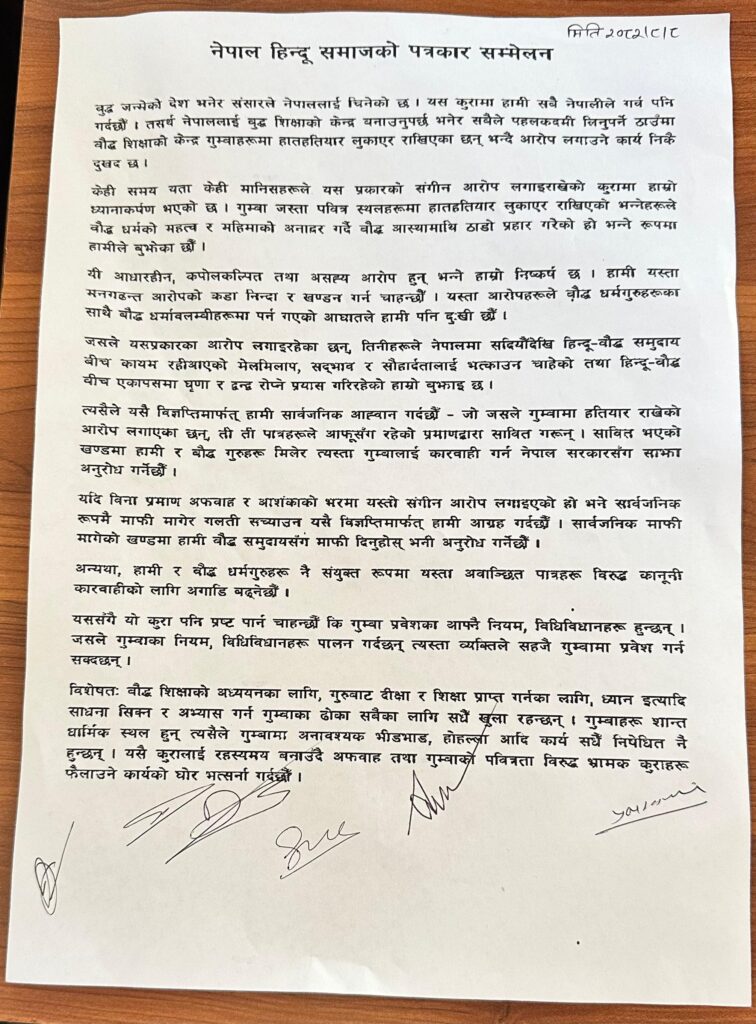 मिति २०८२/८/८
नेपाल हिन्दू समाजको पत्रकार सम्मेलन
बुद्ध जन्मेको देश भनेर संसारले नेपाललाई चिनेको छ । यस कुरामा हामी सबै नेपालीले गर्व पनि
गर्दछौं । तसर्थ नेपाललाई बुद्ध शिक्षाको केन्द्र बनाउनुपर्छ भनेर सबैले पहलकदमी लिनुपर्ने ठाउँमा
बौद्ध शिक्षाको केन्द्र गुम्बाहरूमा हातहतियार लुकाएर राखिएका छन् भन्दै आरोप लगाउने कार्य निकै
दुखद छ ।
केही समय यता केही मानिसहरूले यस प्रकारको संगीन आरोप लगाइराखेको कुरामा हाम्रो
ध्यानाकर्षण भएको छ । गुम्बा जस्ता पवित्र स्थलहरूमा हातहतियार लुकाएर राखिएको भन्नेहरूले
बौद्ध धर्मको महत्व र महिमाको अनादर गर्दै बौद्ध आस्थामाथि ठाडो प्रहार गरेको हो भन्ने रूपमा
हामीले बुझेका छौं ।
यी आधारहीन, कपोलकल्पित तथा असह्य आरोप हुन् भन्ने हाम्रो निष्कर्ष छ । हामी यस्ता
मनगढन्त आरोपको कडा निन्दा र खण्डन गर्न चाहन्छौं । यस्ता आरोपहरूले बौद्ध धर्मगुरुहरूका
साथै बौद्ध धर्मावलम्बीहरूमा पर्न गएको आघातले हामी पनि दुःखी छौं ।
जसले यसप्रकारका आरोप लगाइरहेका छन्, तिनीहरूले नेपालमा सदियौंदेखि हिन्दू-बौद्ध समुदाय
बीच कायम रहीआएको मेलमिलाप, सद्भाव र सौहार्दतालाई भत्काउन चाहेको तथा हिन्दू-बौद्ध
बीच एकापसमा घृणा र द्वन्द्व रोप्ने प्रयास गरिरहेको हाम्रो बुझाइ छ ।
त्यसैले यसै विज्ञप्तिमार्फत् हामी सार्वजनिक आह्वान गर्दछौं – जो जसले गुम्बामा हतियार राखेको
आरोप लगाएका छन्, ती ती पात्रहरूले आफूसँग रहेको प्रमाणद्वारा सावित गरून् । सावित भएको
खण्डमा हामी र बौद्ध गुरुहरू मिलेर त्यस्ता गुम्बालाई कारवाही गर्न नेपाल सरकारसँग साझा
अनुरोध गर्नेछौं ।
यदि बिना प्रमाण अफवाह र आशंकाको भरमा यस्तो संगीन आरोप लगाइएको हो भने सार्वजनिक
रूपमै माफी मागेर गलती सच्याउन यसै विज्ञप्तिमार्फत् हामी आग्रह गर्दछौं । सार्वजनिक माफी
मागेको खण्डमा हामी बौद्ध समुदायसँग माफी दिनुहोस् भनी अनुरोध गर्नेछौं ।
अन्यथा, हामी र बौद्ध धर्मगुरुहरू नै संयुक्त रूपमा यस्ता अवाञ्छित पात्रहरू विरुद्ध कानूनी
कारवाहीको लागि अगाडि बढ्नेछौं ।
यससँगै यो कुरा पनि प्रष्ट पार्न चाहन्छौं कि गुम्बा प्रवेशका आफ्नै नियम, विधिविधानहरू हुन्छन् ।
जसले गुम्बाका नियम, विधिविधानहरू पालन गर्दछन् त्यस्ता व्यक्तिले सहजै गुम्बामा प्रवेश गर्न
सक्दछन् ।
विशेषतः बौद्ध शिक्षाको अध्ययनका लागि, गुरुबाट दीक्षा र शिक्षा प्राप्त गर्नका लागि, ध्यान इत्यादि
साधना सिक्न र अभ्यास गर्न गुम्बाका ढोका सबैका लागि सधैं खुला रहन्छन् । गुम्बाहरू शान्त
धार्मिक स्थल हुन् त्यसैले गुम्बामा अनावश्यक भीडभाड, होहल्ला आदि कार्य सधैं निषेधित नै
हुन्छन् । यसै कुरालाई रहस्यमय बनाउँदै अफवाह तथा गुम्बाको पवित्रता विरुद्ध भ्रामक कुराहरू
फैलाउने कार्यको घोर भर्त्सना गर्दछौं ।